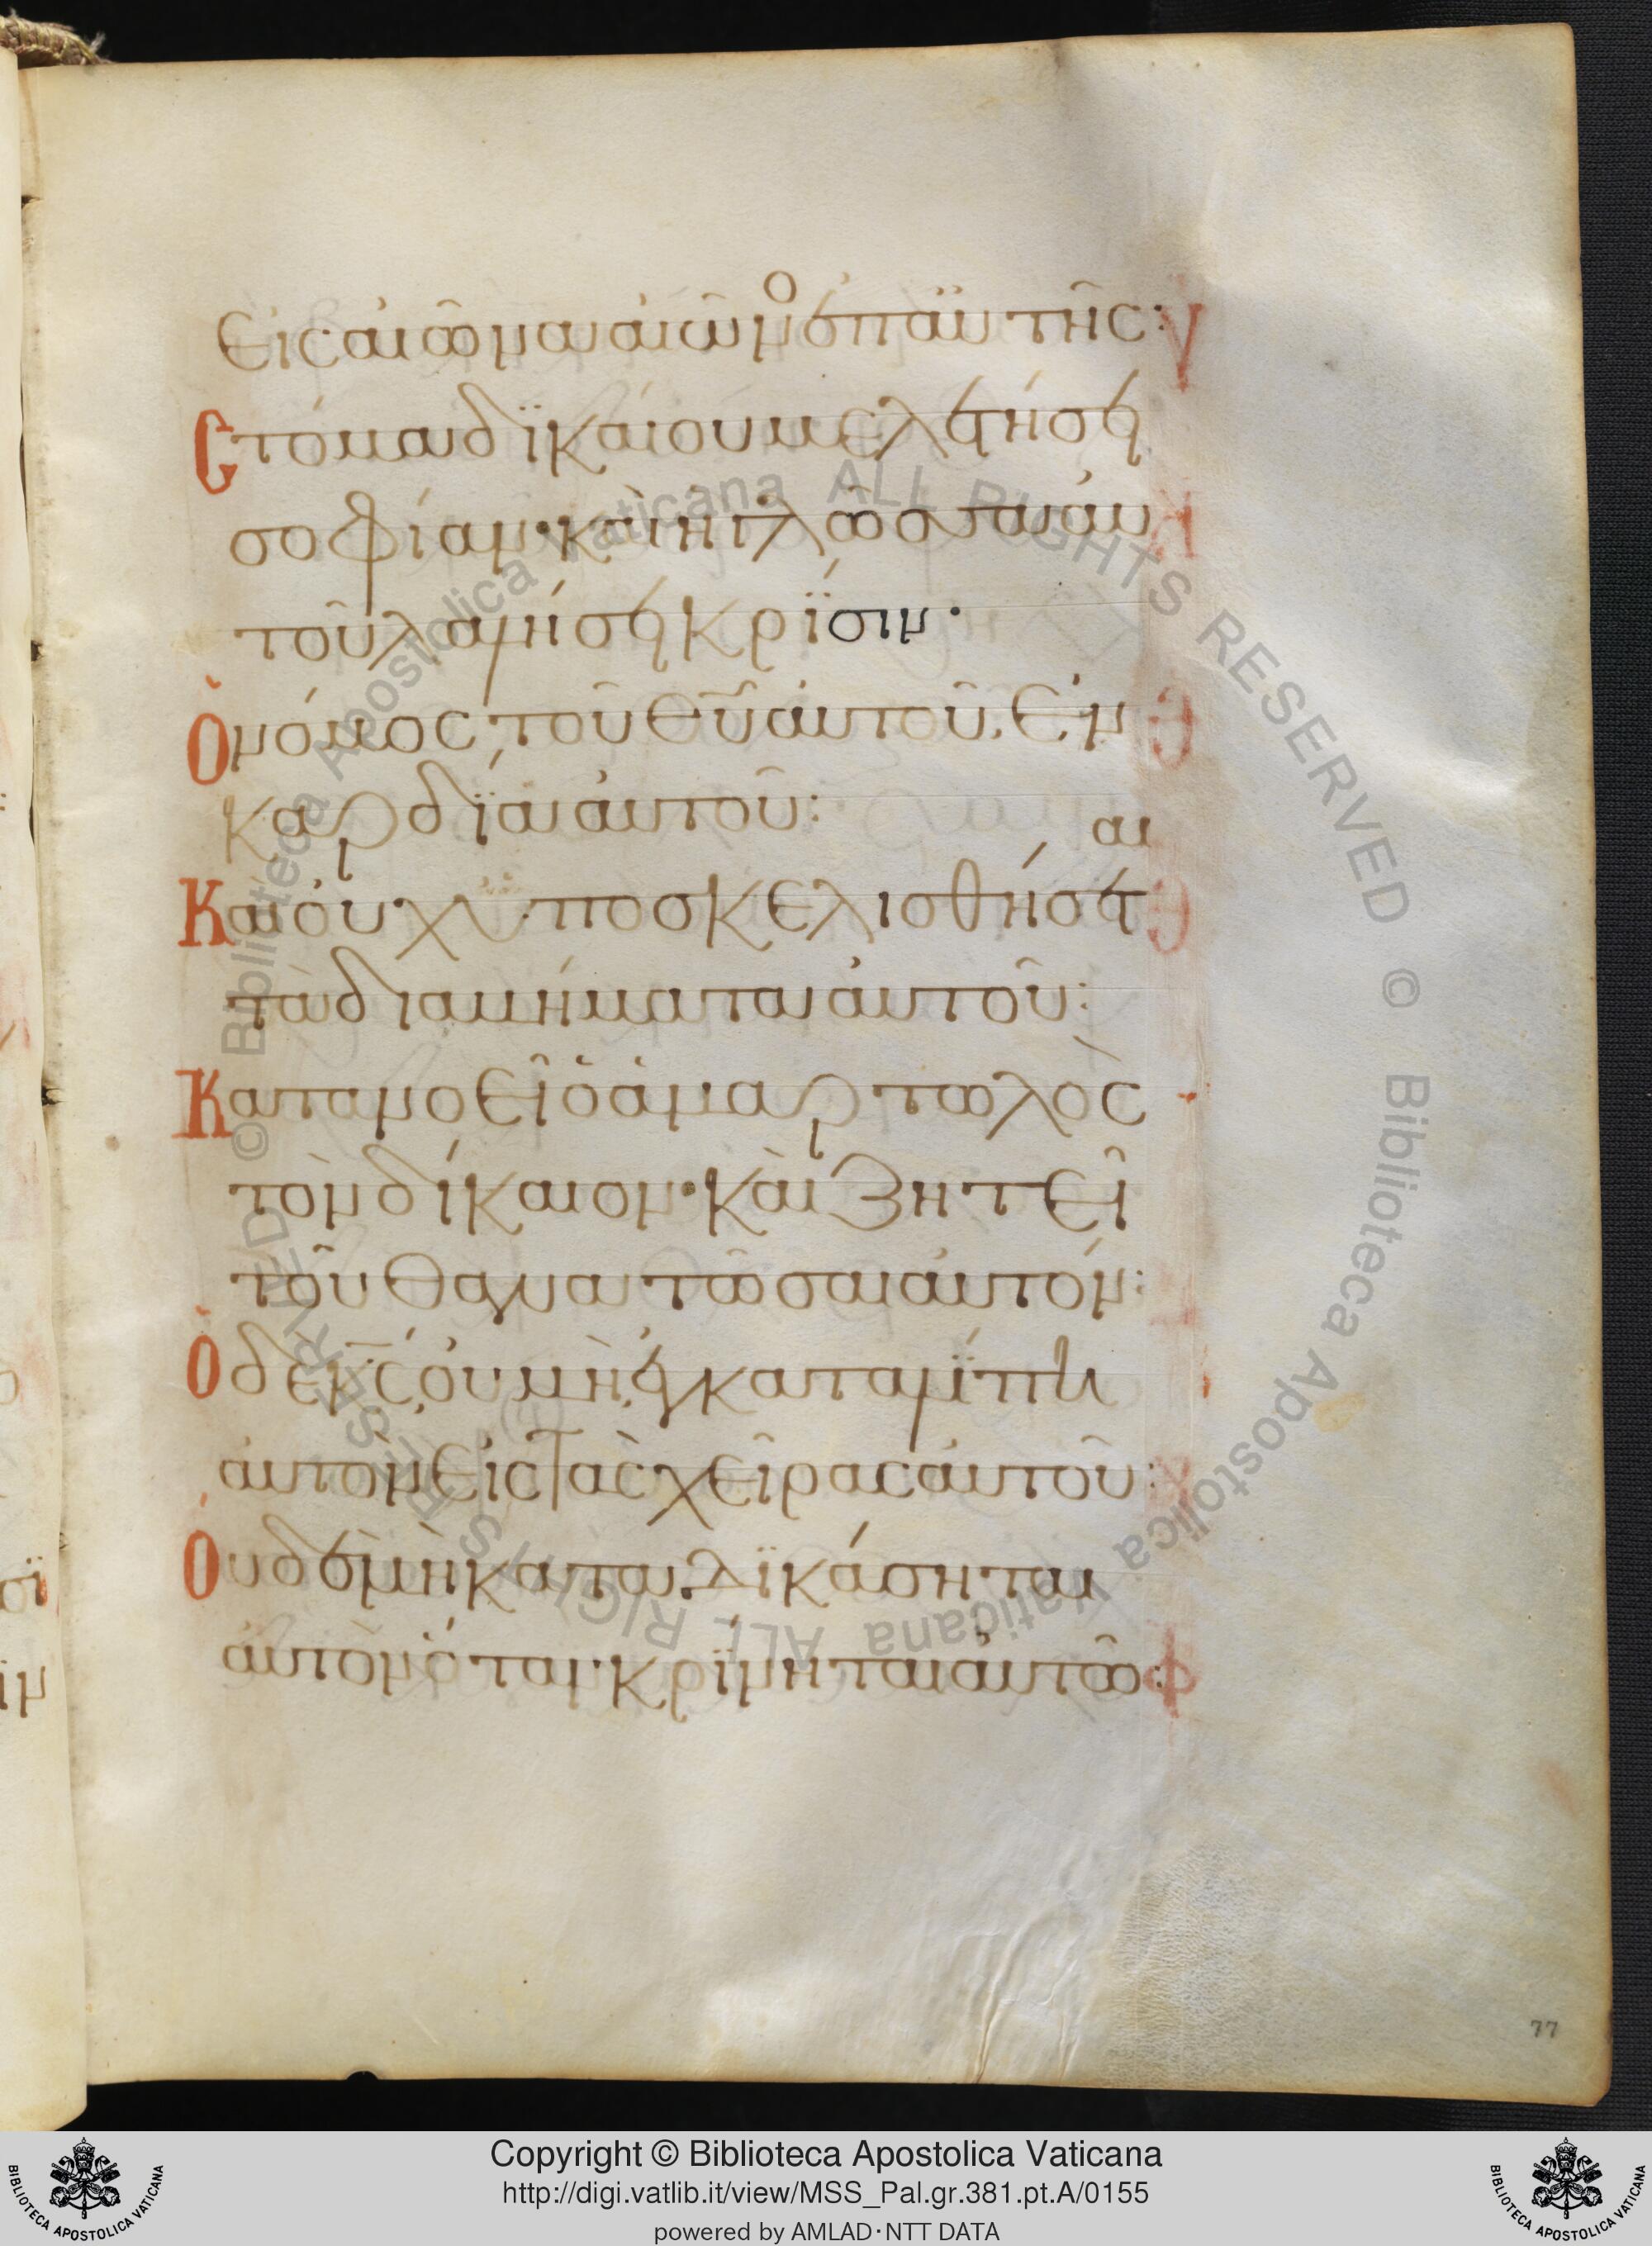 εἰς αἰῶνα αἰῶνος ἐπ' αὐτῆς:
Στόμα δϊκαίου μελετήσει
σοφίαν· καὶ ἡ γλῶσσα αὐ
τοῦ λαλήσει κρίσιν·
Ὁ νόμος τοῦ θῡ αὐτοῦ, ἐν
καρδίᾳ αὐτοῦ:
Καὶ οὐχ ὑποσκελισθήσεται
τὰ διαβήματα αὐτοῦ:
Κατανοεῖ ὁ ἁμαρτωλὸς
τὸν δίκαιον· καὶ ζητεῖ
τοῦ θανατῶσαι αὐτόν:
Ὁ δὲ κ̄ς̄ οὐ μὴ ἐγκαταλίπῃ
αὐτὸν εἰς τὰς χεῖρας αὐτοῦ:
Οὐδ' ἐὰν μὴ καταδϊκάσηται
αὐτὸν ὅταν κρίνηται αὐτῷ:
77
© Biblioteca Apostolica Vaticana ALL RIGHTS RESERVED © Biblioteca Apostolica Vaticana ALL RIGHTS RESERVED
Copyright © Biblioteca Apostolica Vaticana
http://digi.vatlib.it/view/MSS_Pal.gr.381.pt.A/0155
powered by AMLAD·NTT DATA
BIBLIOTECA APOSTOLICA VATICANA
BIBLIOTECA APOSTOLICA VATICANA